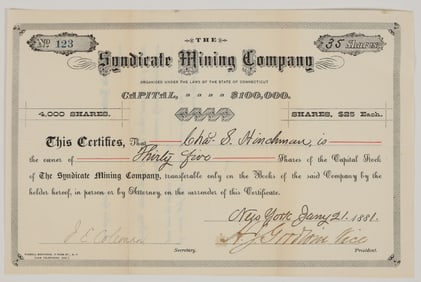 THE
No. 123
35 Shares
Syndicate Mining Company
ORGANIZED UNDER THE LAWS OF THE STATE OF CONNECTICUT
CAPITAL, $100,000.
4,000 SHARES. SHARES, $25 Each.
This Certifies, That Chas. S. Hinchman, is
the owner of Thirty five Shares of the Capital Stock
of The Syndicate Mining Company, transferable only on the Books of the said Company by the
holder hereof, in person or by Attorney, on the surrender of this Certificate.
New York Jany 21. 1881.
Secretary.
Vice
President.